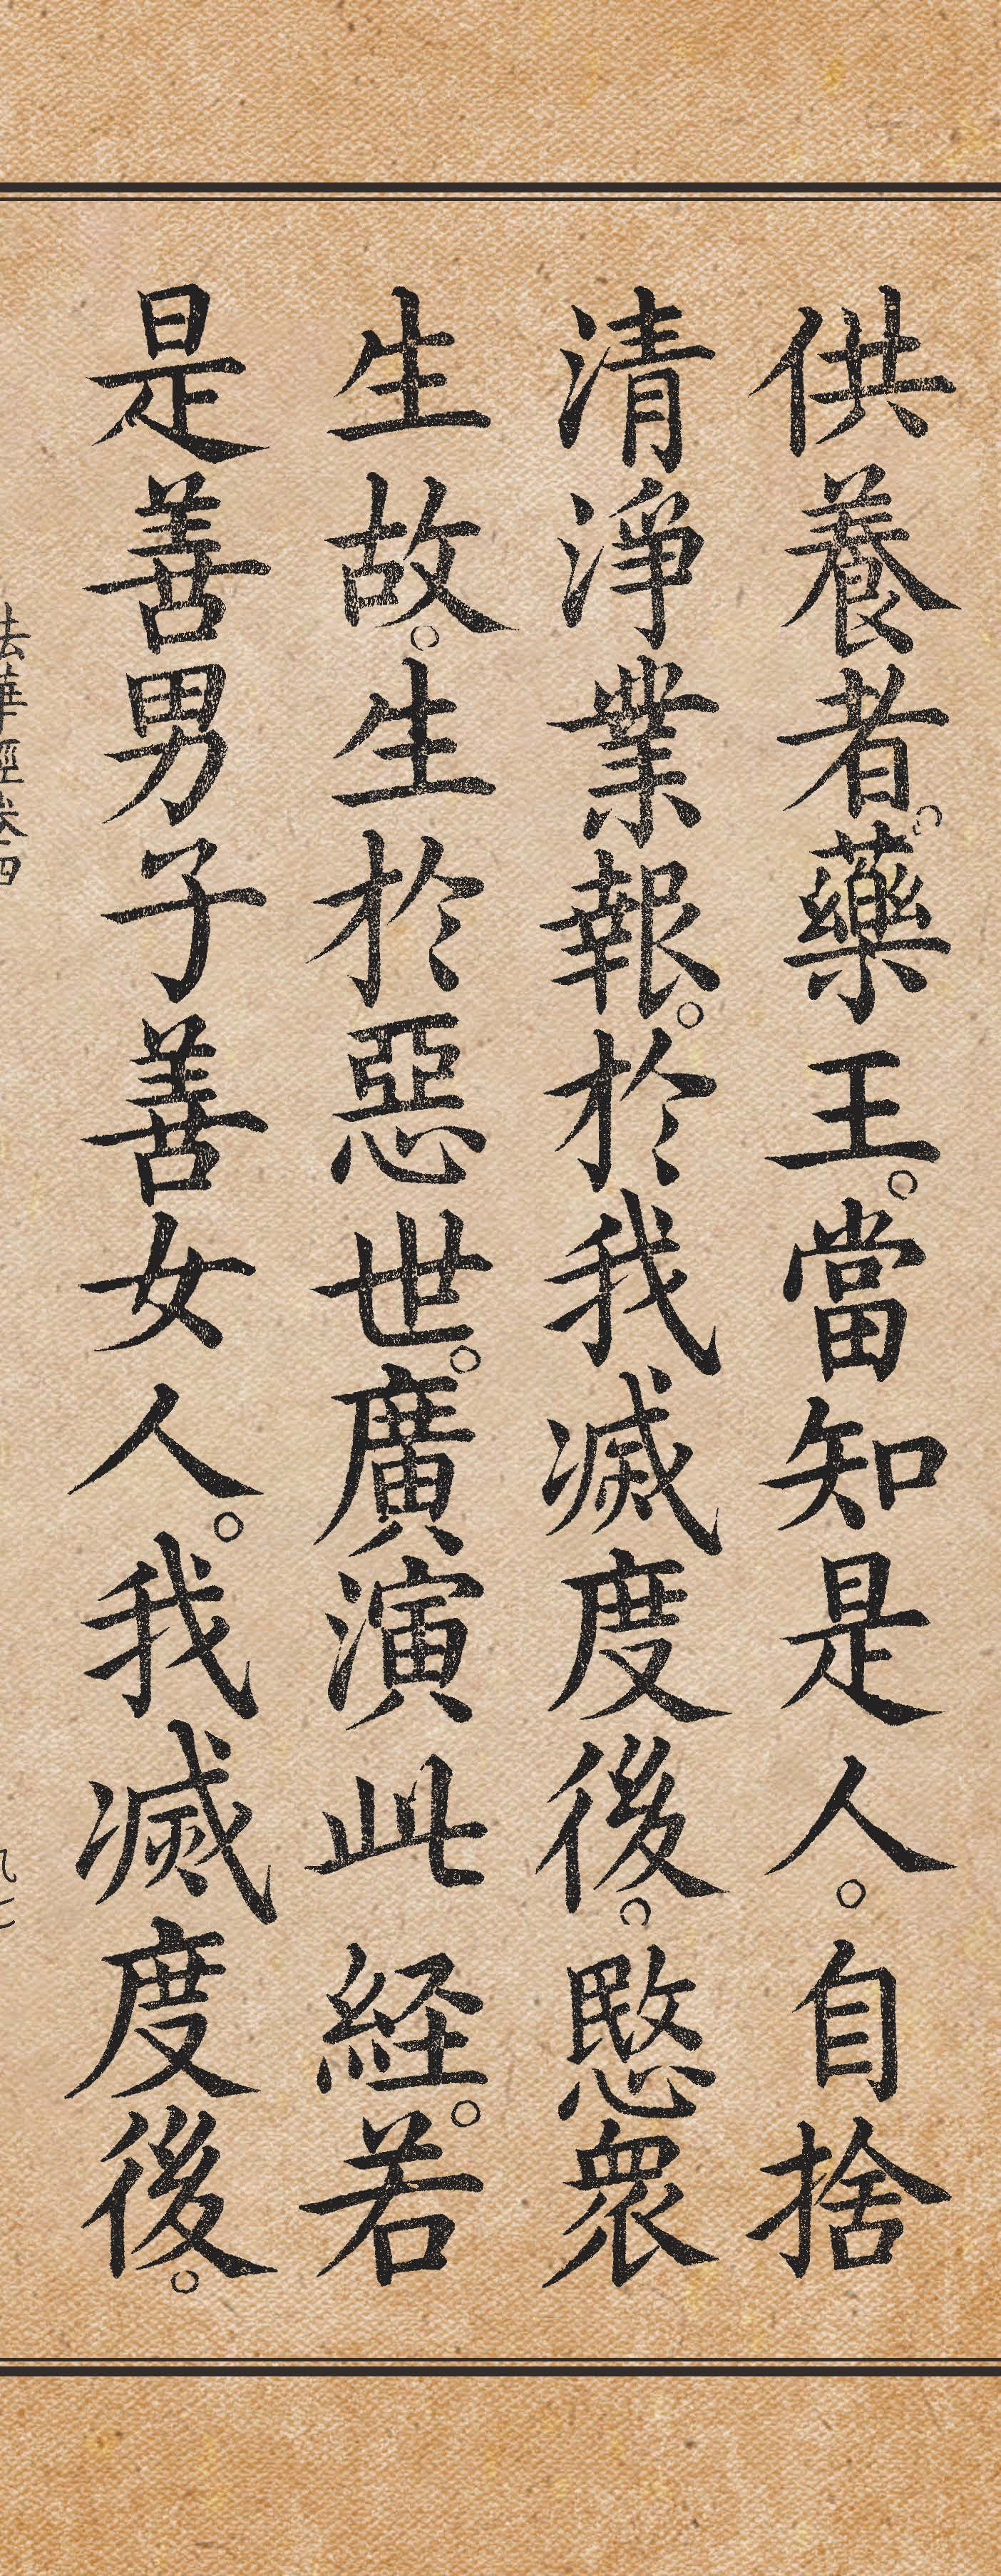 供養者。藥王。當知是人。自捨
清淨業報。於我滅度後。愍衆
生故。生於惡世。廣演此経。若
是善男子善女人。我滅度後。
法華經卷四